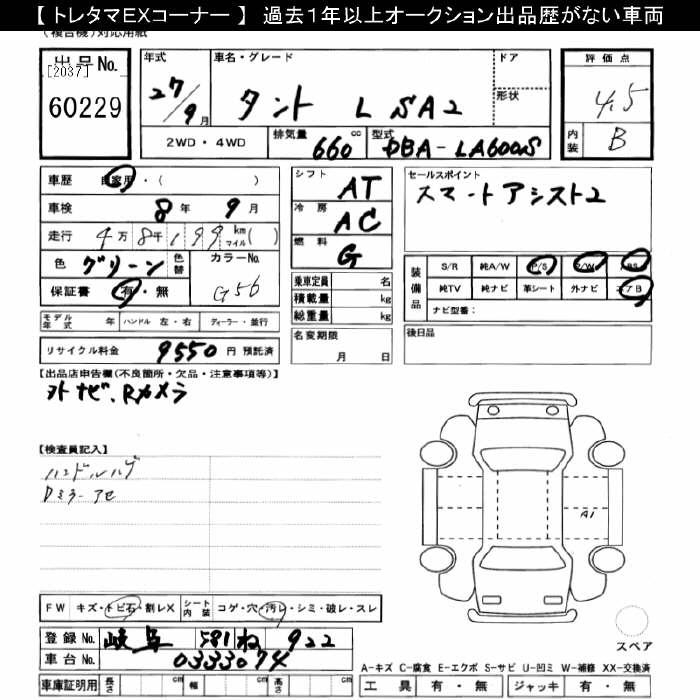 【 トレタマEXコーナー 】 過去1年以上オークション出品歴がない車両
(複合機)対応用紙
出品No. [2037] 60229
年式 27/9月
車名・グレード タント L SA2
ドア
形状
評価点 4.5
内装 B
2WD・4WD
排気量 660 cc
型式 DBA-LA600S
車歴 自家用・( )
車検 8年 9月
走行 4万8千199 km マイル( )
色 グリーン 色替 カラーNo. G56
保証書 有・無
シフト AT
冷房 AC
燃料 G
乗車定員 名
積載量 kg
総重量 kg
セールスポイント
スマートアシスト2
装備品 S/R 純A/W P/S P/W ABS
純TV 純ナビ 革シート 外ナビ エアB
ナビ型番:
モデル年式 年 ハンドル 左・右 ディーラー・並行
名変期限 月 日
後日品
リサイクル料金 9550 円 預託済
【出品店申告欄(不良箇所・欠品・注意事項等)】
外ナビ、Rカメラ
【検査員記入】
ハンドルハゲ
Dミラーアセ
A1
FW キズ・トビ石・割レX シート内装 コゲ・穴・汚レ・シミ・破レ・スレ
登録No. 岐阜 581 ね 922
車台No. 0333074
スペア
A-キズ C-腐食 E-エクボ S-サビ U-凹ミ W-補修 XX-交換済
車庫証明用 長さ cm 幅 cm 高さ cm
工具 有・無 ジャッキ 有・無